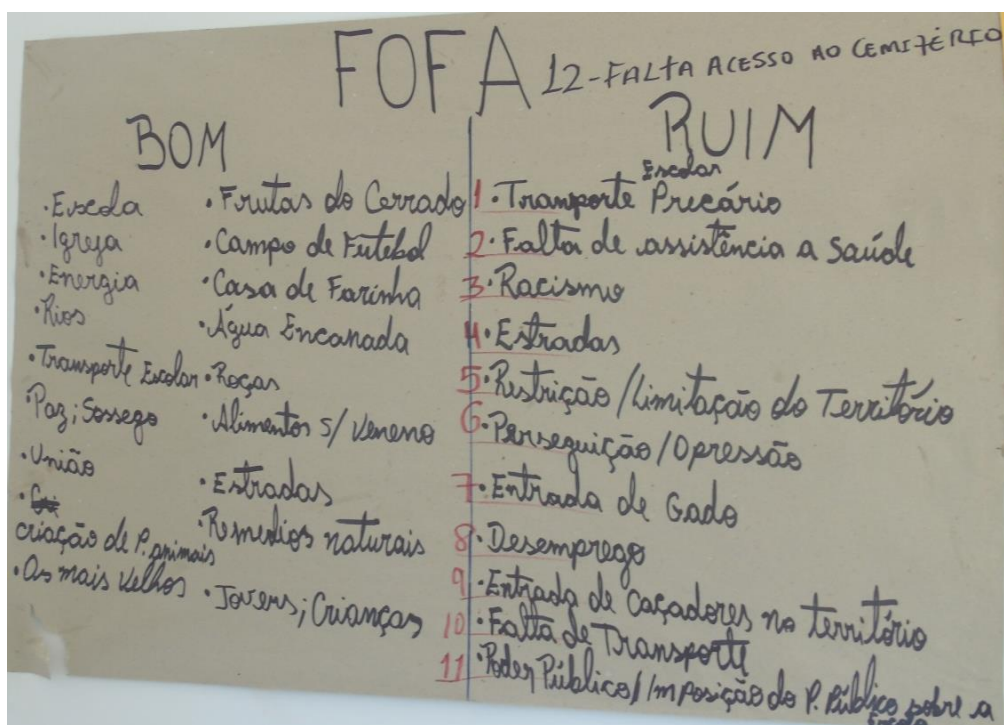 FOFA
12-FALTA ACESSO AO CEMITÉRIO
BOM
·Escola
·Igreja
·Energia
·Rios
·Transporte Escolar
·Paz; Sossego
·União
·criação de P. animais
·Os mais Velhos
·Frutas do Cerrado
·Campo de Futebol
·Casa de Farinha
·Água Encanada
·Roças
·Alimentos s/ Veneno
·Estradas
·Remedios naturais
·Jovens; Crianças
RUIM
Escolar
1·Transporte Precário
2·Falta de assistência a Saúde
3·Racismo
4·Estradas
5·Restrição/Limitação do Território
6·Perseguição/Opressão
7·Entrada de Gado
8·Desemprego
9·Entrada de Caçadores no território
10·Falta de Transporte
11·Poder Público/Imposição do P. Público sobre a